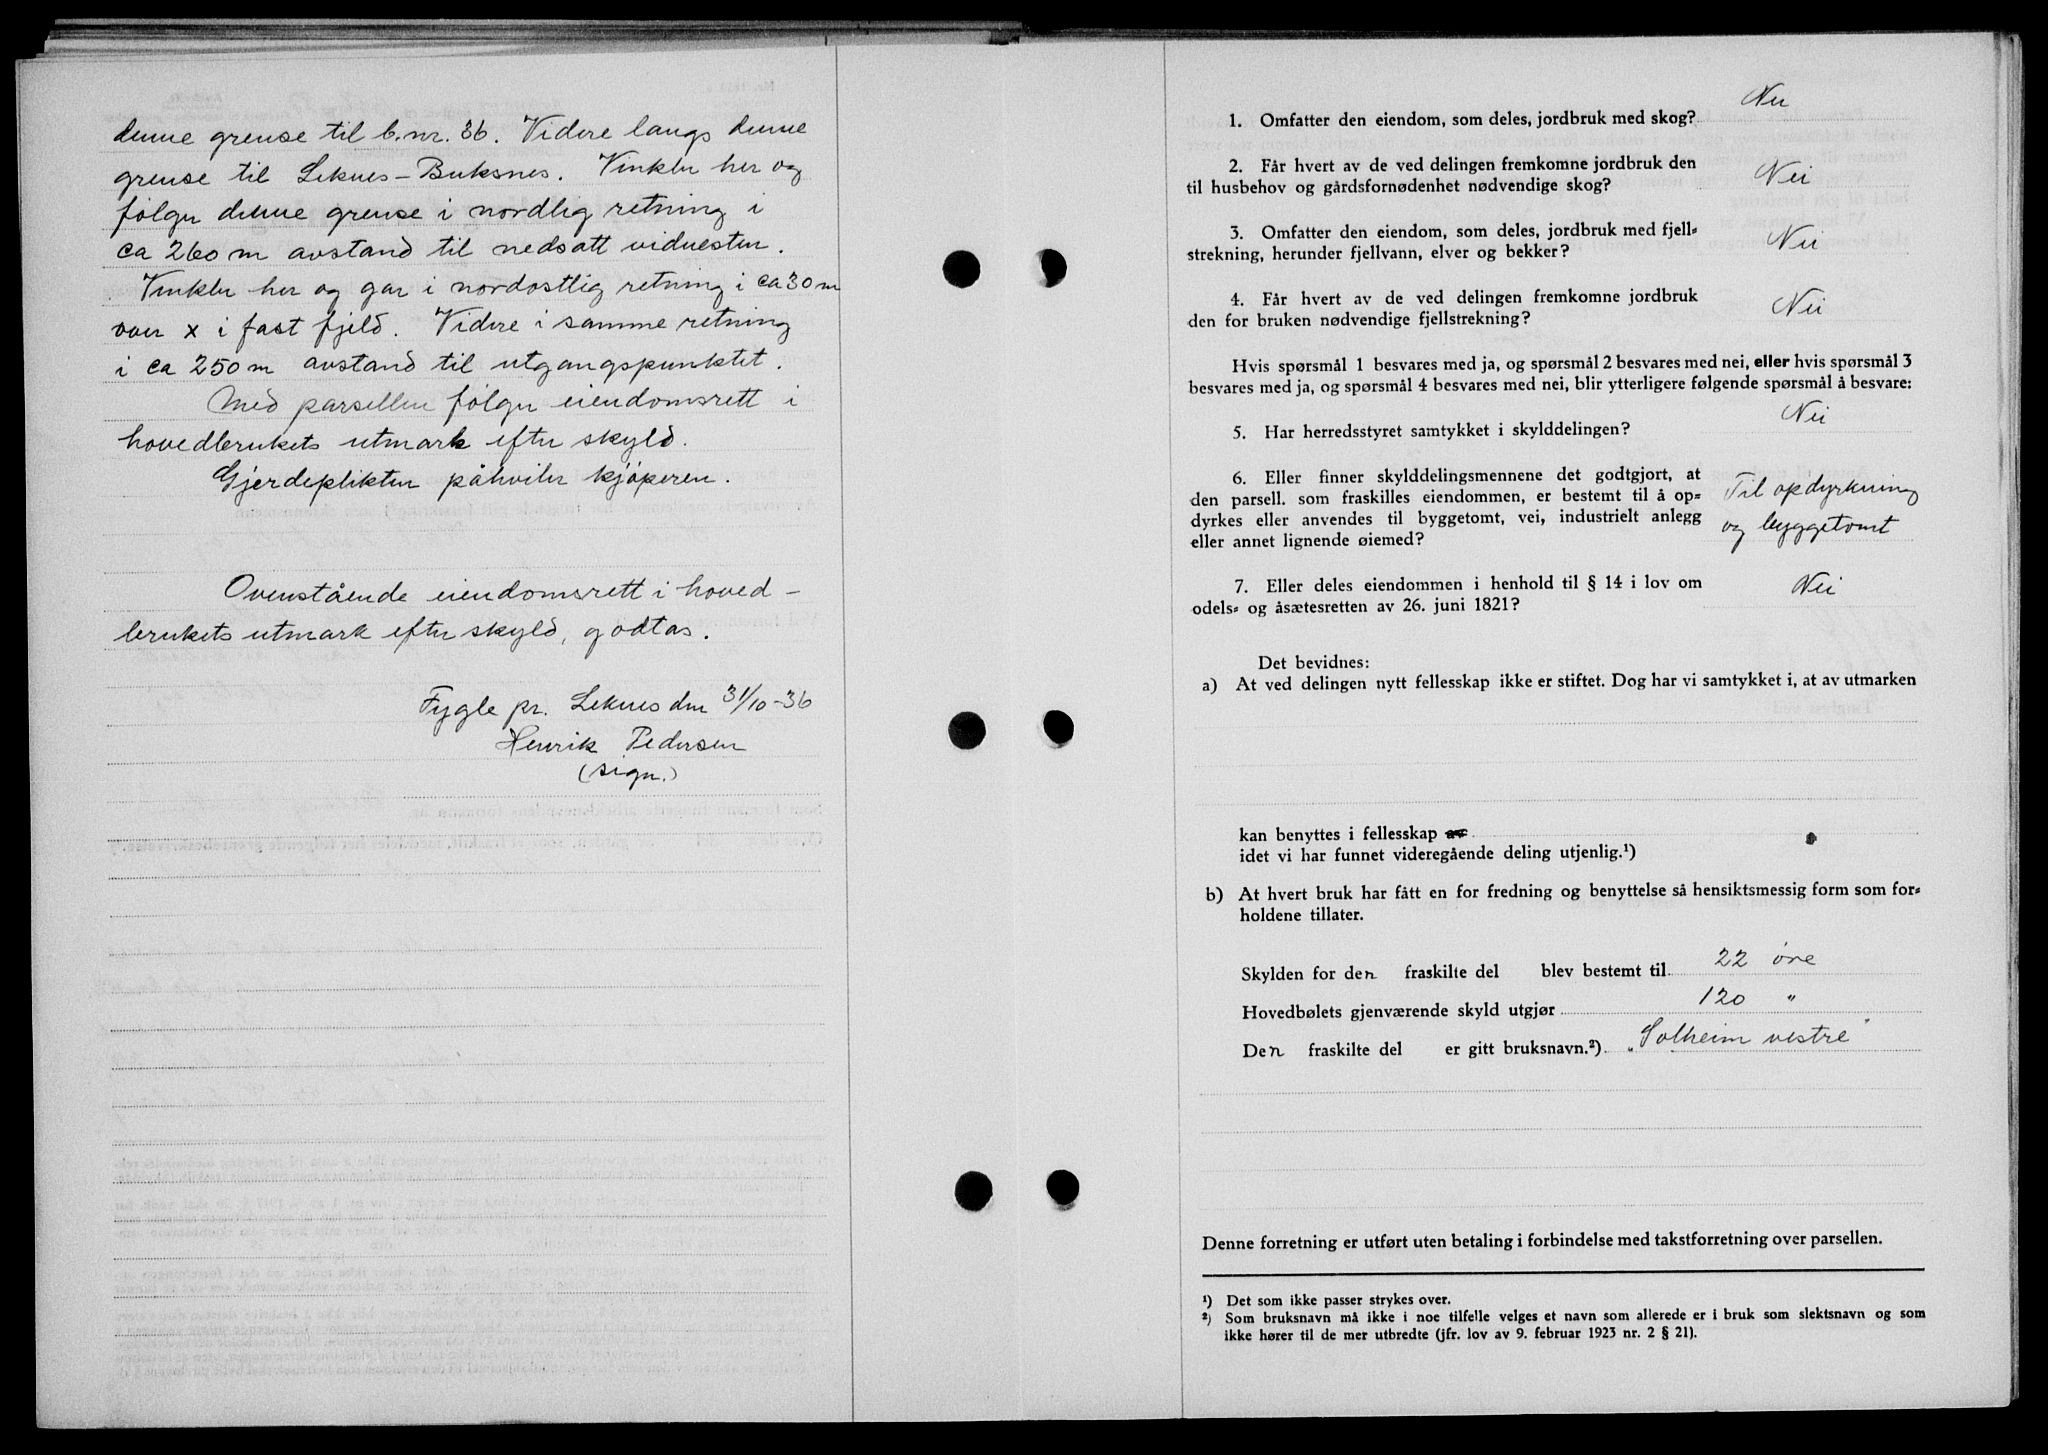 denne grense til b.nr. 36. Videre langs denne
grense til Leknes-Buksnes. Vinkler her og
følger denne grense i nordlig retning i
ca 260 m avstand til nedsatt vidnesten.
Vinkler her og går i nordostlig retning i ca 30 m
over x i fast fjeld. Videre i samme retning
i ca 250 m avstand til utgangspunktet.
Med parsellen følger eiendomsrett i
hovedbrukets utmark efter skyld.
Gjerdeplikten påhviler kjøperen.
Ovenstående eiendomsrett i hoved-
brukets utmark efter skyld, godtas.
Fygle pr. Leknes den 31/10-36
Henrik Pedersen
(sign.)
Nei
1. Omfatter den eiendom, som deles, jordbruk med skog?
2. Får hvert av de ved delingen fremkomne jordbruk den
til husbehov og gårdsfornødenhet nødvendige skog? Nei
3. Omfatter den eiendom, som deles, jordbruk med fjell=
strekning, herunder fjellvann, elver og bekker? Nei
4. Får hvert av de ved delingen fremkomne jordbruk
den for bruken nødvendige fjellstrekning? Nei
Hvis spørsmål 1 besvares med ja, og spørsmål 2 besvares med nei, eller hvis spørsmål 3
besvares med ja, og spørsmål 4 besvares med nei, blir ytterligere følgende spørsmål å besvare:
Nei
5. Har herredsstyret samtykket i skylddelingen?
6. Eller finner skylddelingsmennene det godtgjort, at
den parsell. som fraskilles eiendommen, er bestemt til å op= Til opdyrkning
dyrkes eller anvendes til byggetomt, vei, industrielt anlegg og byggetomt
eller annet lignende øiemed?
7. Eller deles eiendommen i henhold til § 14 i lov om Nei
odels= og åsætesretten av 26. juni 1821?
Det bevidnes:
a) At ved delingen nytt fellesskap ikke er stiftet. Dog har vi samtykket i, at av utmarken
kan benyttes i fellesskap av
idet vi har funnet videregående deling utjenlig.¹)
b) At hvert bruk har fått en for fredning og benyttelse så hensiktsmessig form som for=
holdene tillater.
Skylden for den fraskilte del blev bestemt til 22 øre
Hovedbølets gjenværende skyld utgjør 120 "
Den fraskilte del er gitt bruksnavn.²) „Solheim vestre"
Denne forretning er utført uten betaling i forbindelse med takstforretning over parsellen.
¹) Det som ikke passer strykes over.
²) Som bruksnavn må ikke i noe tilfelle velges et navn som allerede er i bruk som slektsnavn og som
ikke hører til de mer utbredte (jfr. lov av 9. februar 1923 nr. 2 § 21).